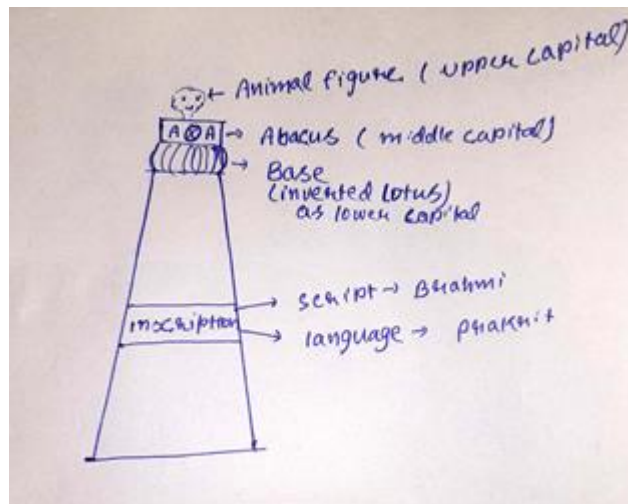 ← Animal figure. (upper capital)
A ⊗ A → Abacus (middle capital)
→ Base
(inverted lotus)
as lower capital
script → Brahmi
inscription
language → prakrit